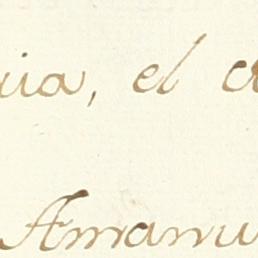 uia, el c
Amanu